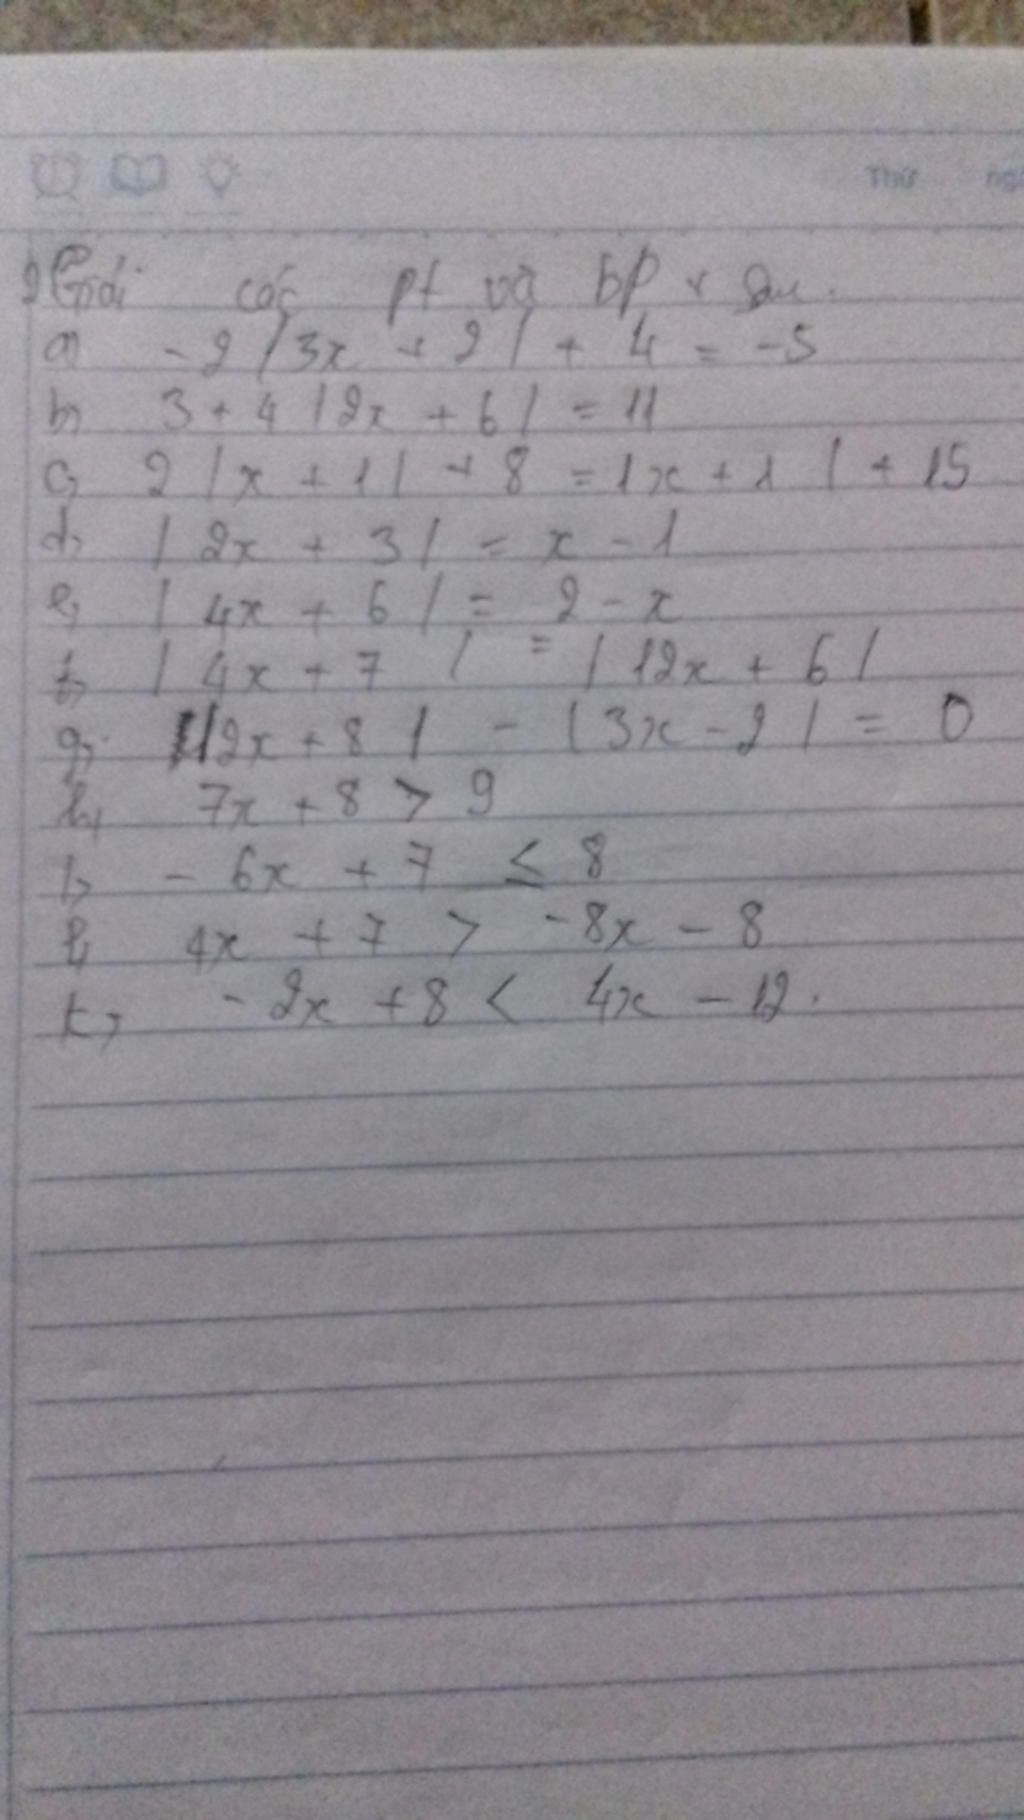 Thứ ng
Giải các pt và bp t sau.
a) -2|3x + 2| + 4 = -5
b) 3 + 4|2x + 6| = 11
c) 2|x + 1| + 8 = |x + 1| + 15
d) |2x + 3| = x - 1
e) |4x + 6| = 2 - x
f) |4x + 7| = |12x + 6|
g) |2x + 8| - |3x - 2| = 0
h) 7x + 8 > 9
i) - 6x + 7 ≤ 8
l) 4x + 7 > -8x - 8
k) -2x + 8 < 4x - 12.